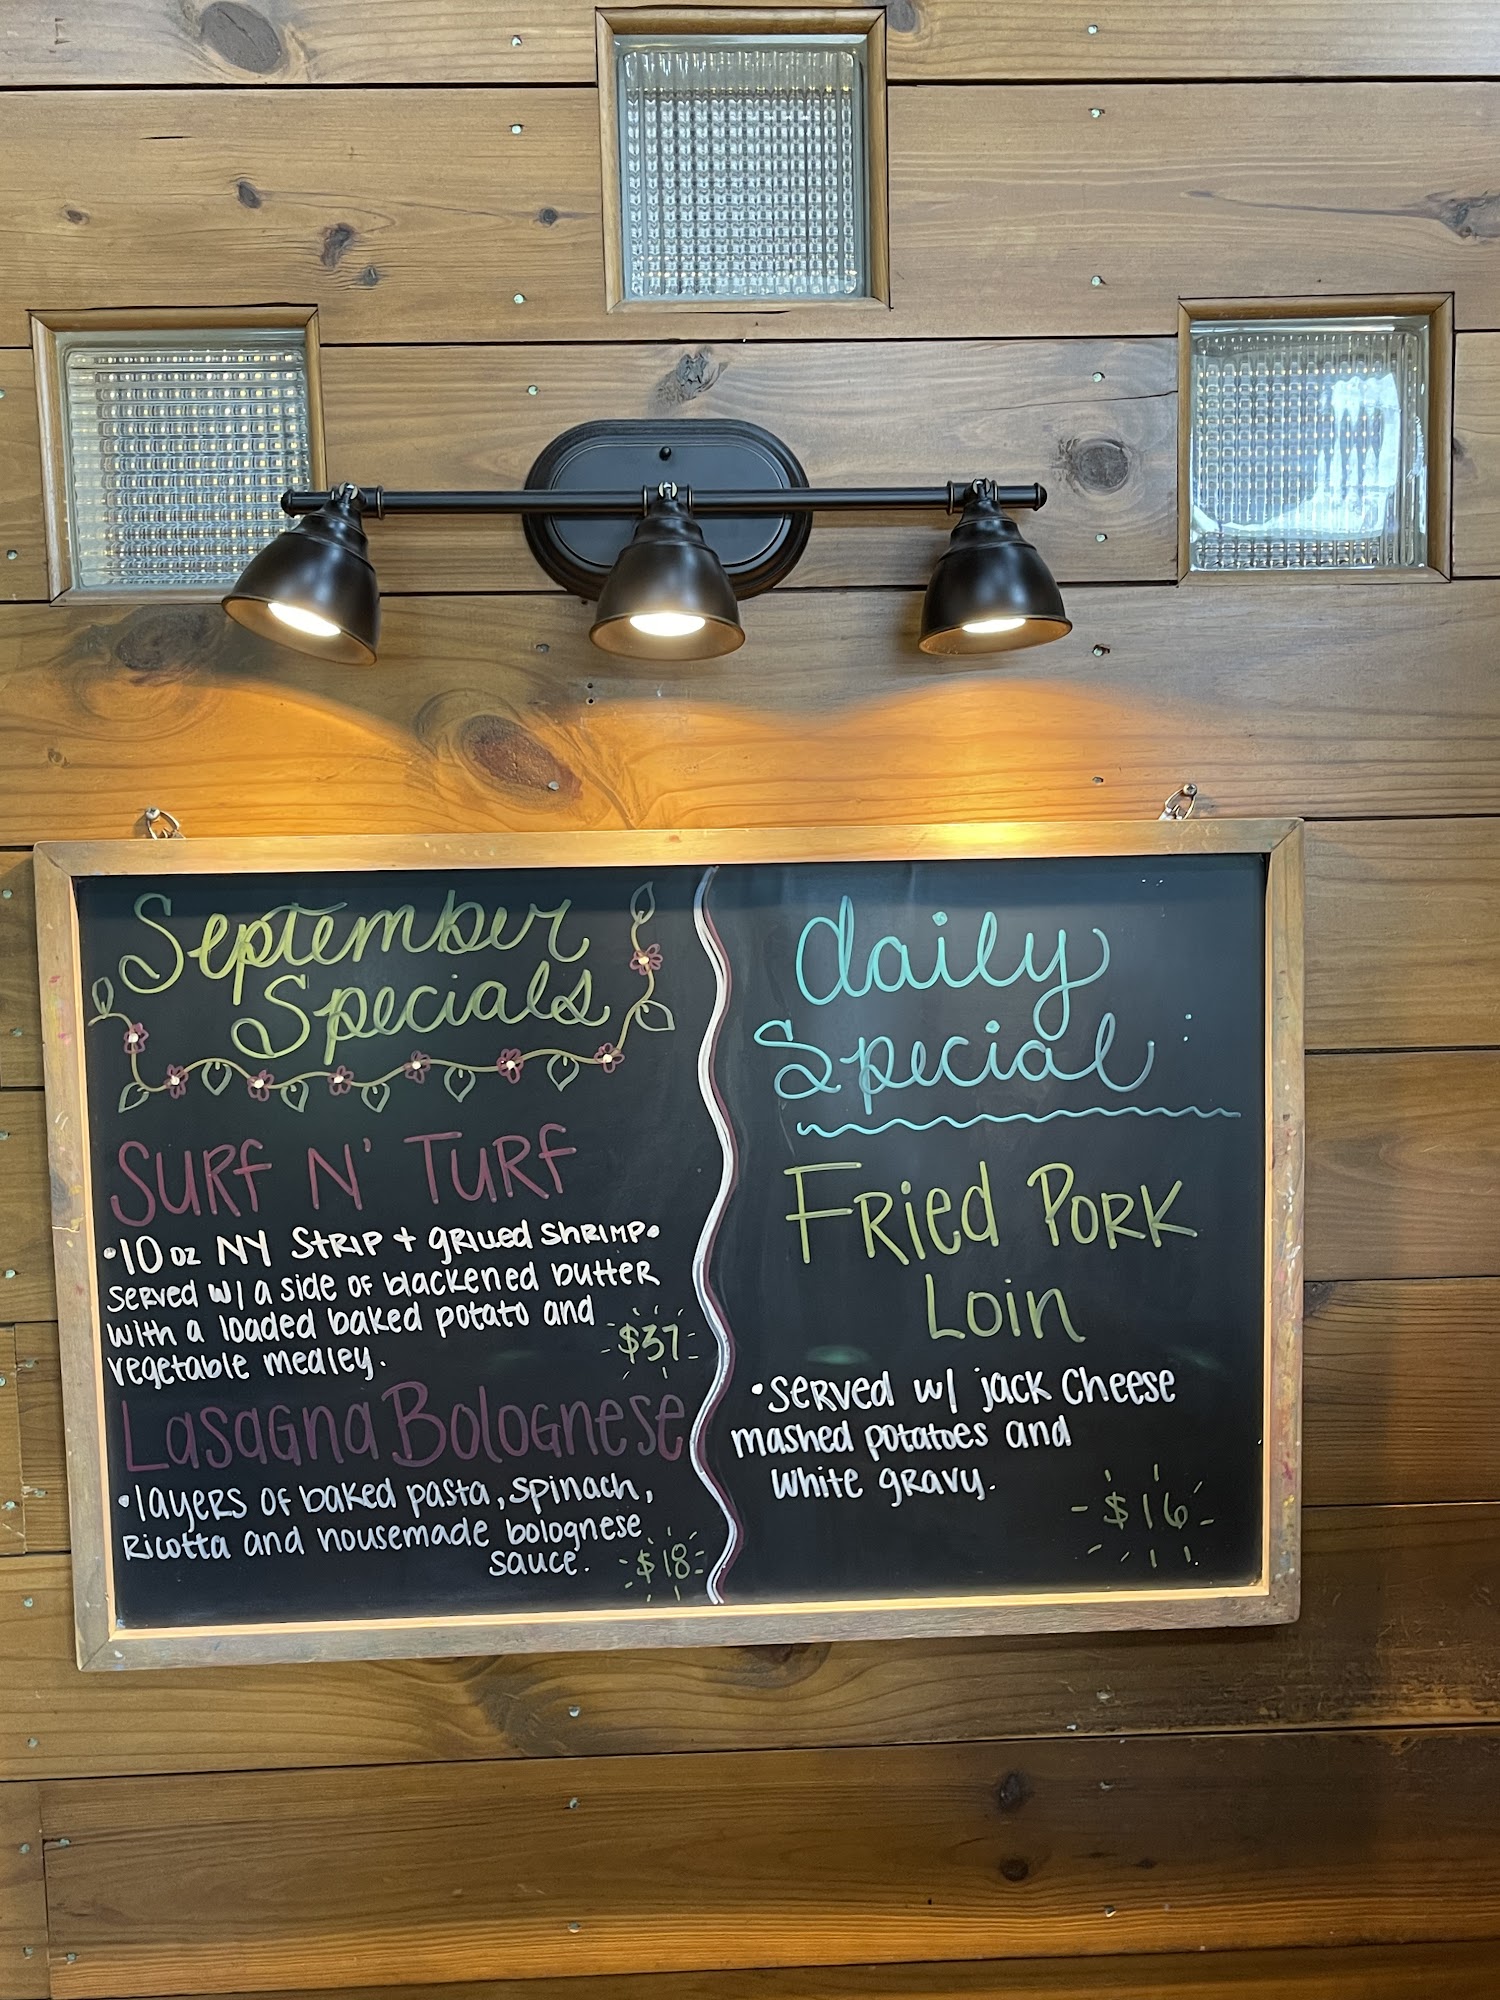 September
Specials
Surf N' Turf
•10 oz NY Strip + grilled shrimp.
served w/ a side of blackened butter
with a loaded baked potato and
vegetable medley.
$37
Lasagna Bolognese
•layers of baked pasta, spinach,
ricotta and housemade bolognese
sauce.
$18
daily
Special
Fried Pork
Loin
•served w/ jack cheese
mashed potatoes and
white gravy.
$16